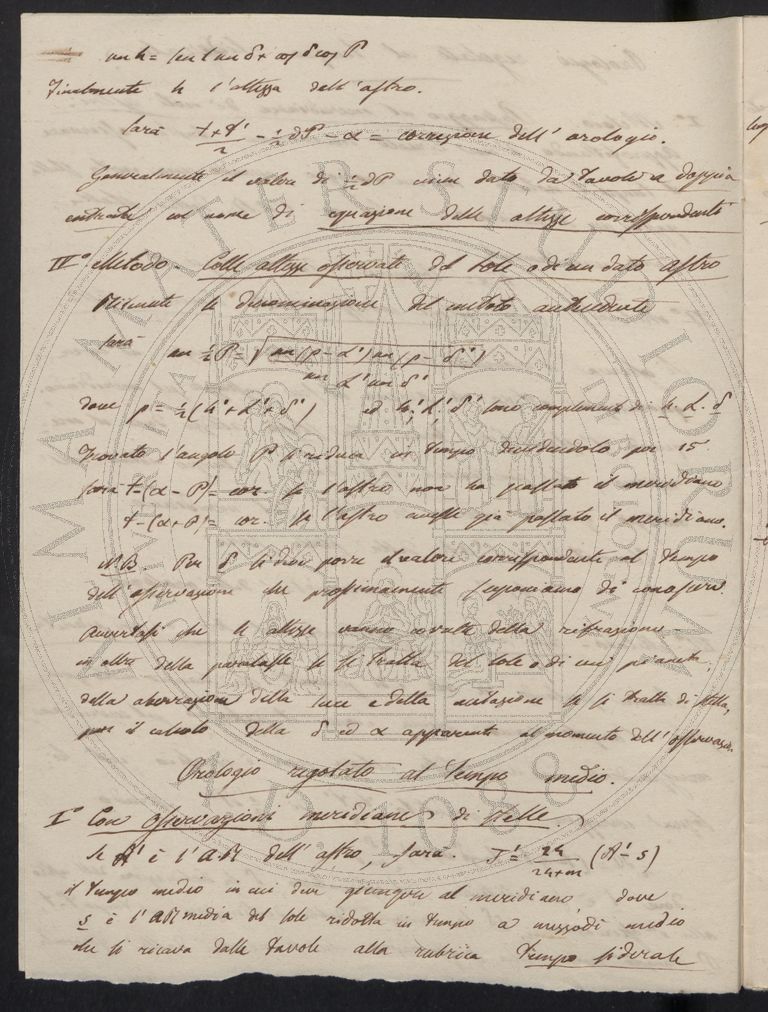 sen h = sen l sen δ + cos δ cos P
Finalmente h l'altezza dell'astro.
sarà (t+t')/2 - ½ dP - α = correzione dell'orologio.
Generalmente il valore di ½ dP viene dato da Tavole a doppia
entrata col nome di equazione delle altezze corrispondenti
IIIº Metodo - Colle altezze osservate del Sole o di un dato astro
Ritenute le denominazione del metodo antecedente
sarà sen ½ P = √ sen (p - L') sen (p - δ') / sen L' sen δ'
dove p = ½ (h' + L' + δ') ed h', L', δ' sono complementi di h. L. δ
Trovato l'angolo P si riduca in Tempo dividendolo per 15
sarà t - (α - P) = cor. se l'astro non ha passato il meridiano
t - (α + P) = cor. se l'astro avesse già passato il meridiano.
N.B. Per δ si deve porre il valore corrispondente al Tempo
dell'osservazione che prossimamente supponiamo di conoscere
Avvertasi che le altezze vanno corrette della rifrazione
in oltre della paralasse se si tratta del Sole o di un pianeta,
della aberrazione della luce e della nutazione se si tratta di stelle,
per il calcolo della δ ed α apparente al momento dell'osservazio.
Orologio regolato al Tempo medio.
Iº Con osservazioni meridiane di Stelle.
Se A' è l'AR dell'astro, sarà. T' = 24/(24+m) (A' - S)
il Tempo medio in cui deve giungere al meridiano, dove
S è l'AR media del Sole ridotta in Tempo a mezzodì medio
che si ricava dalle Tavole alla rubrica Tempo siderale
MINA MATER STUDIORUM
A.D. 1088